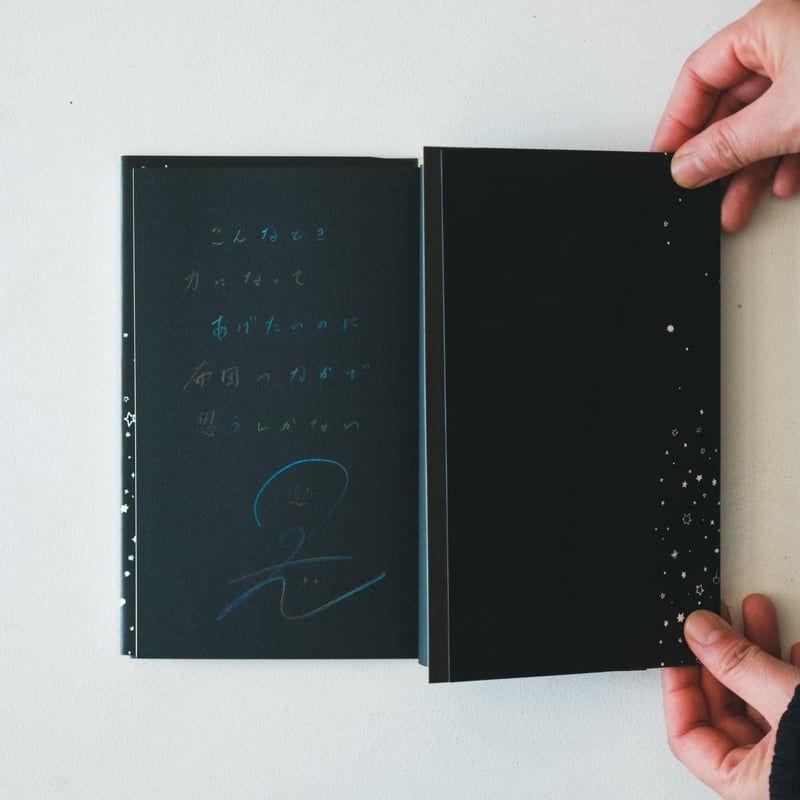 こんなとき
力になって
あげたいのに
布団のなかで
思うしかない